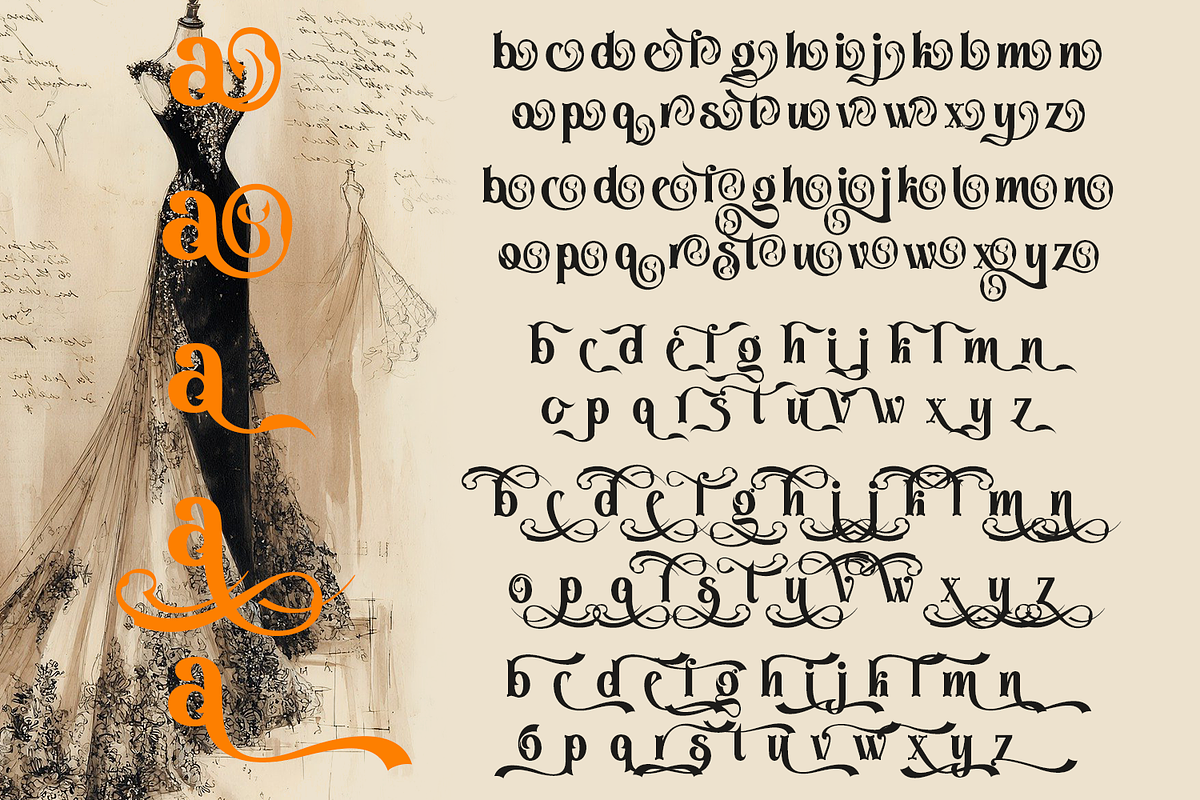 a
b c d e f g h i j k l m n
o p q r s t u v w x y z
a
b c d e f g h i j k l m n
o p q r s t u v w x y z
a
b c d e f g h i j k l m n
o p q r s t u v w x y z
a
b c d e f g h i j k l m n
o p q r s t u v w x y z
a
b c d e f g h i j k l m n
o p q r s t u v w x y z